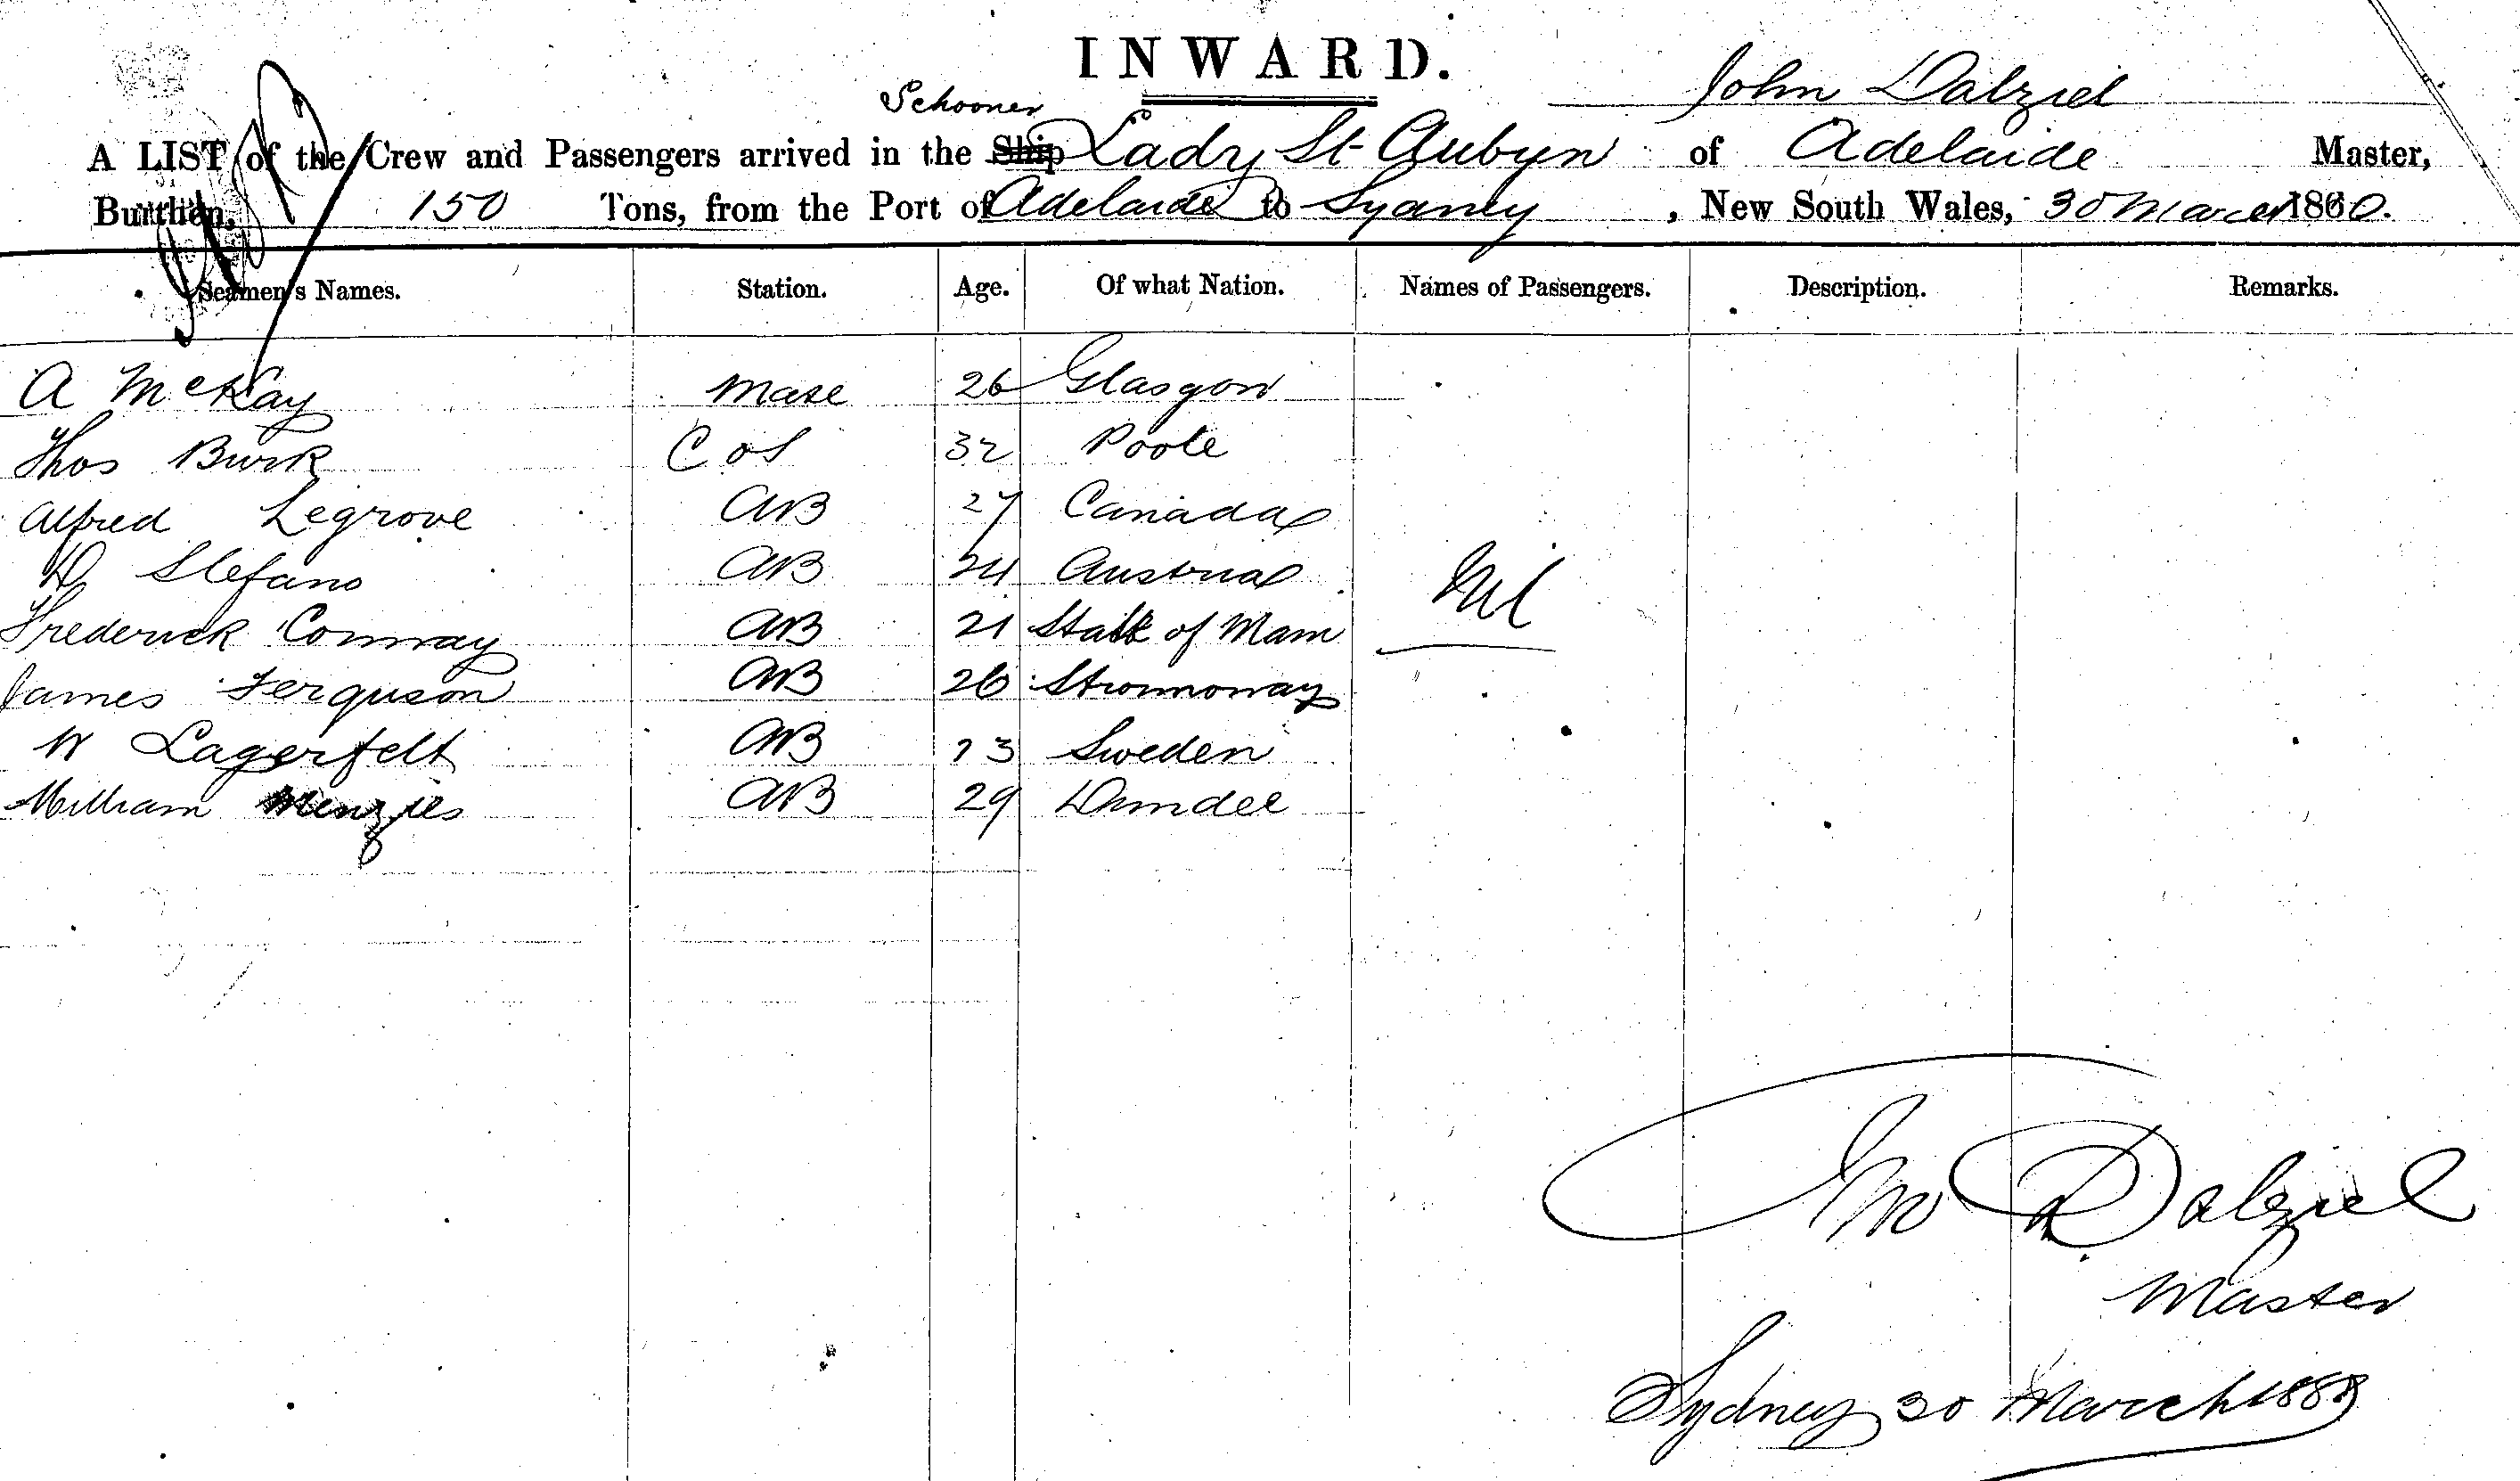 INWARD.
John Dalziel
Schooner
A LIST of the Crew and Passengers arrived in the Ship Lady St Aubyn of Adelaide Master,
Burthen, 150 Tons, from the Port of Adelaide to Sydney , New South Wales, 30 March 1880.
Seamen's Names. Station. Age. Of what Nation. Names of Passengers. Description. Remarks.
A McKay Mate 26 Glasgow
Thos Burk C & S 32 Poole
Alfred Legrove AB 27 Canada
D Stefano AB 24 Austria
Frederick Conway AB 21 State of Main
Nil
James Ferguson AB 26 Stronnoway
W Lagerfelt AB 23 Sweden
William Menzies AB 29 Dundee
Jno Dalziel
Master
Sydney 30 March